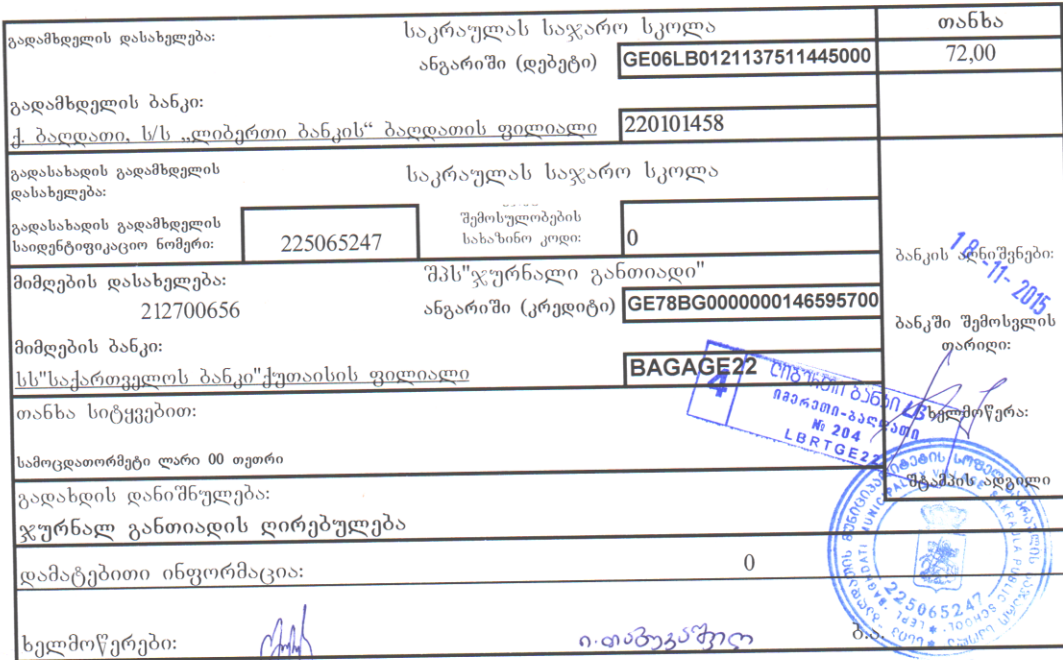 გადამხდელის დასახელება: საკრაულას საჯარო სკოლა თანხა
ანგარიში (დებეტი) GE06LB0121137511445000 72,00
გადამხდელის ბანკი:
ქ. ბაღდათი, ს/ს „ლიბერთი ბანკის“ ბაღდათის ფილიალი 220101458
გადასახადის გადამხდელის
დასახელება:
საკრაულას საჯარო სკოლა
გადასახადის გადამხდელის
საიდენტიფიკაციო ნომერი:
225065247
შემოსულობების
სახაზინო კოდი:
0
ბანკის აღნიშვნები:
18-11-2015
მიმღების დასახელება: შპს"ჯურნალი განთიადი"
212700656 ანგარიში (კრედიტი) GE78BG0000000146595700
ბანკში შემოსვლის
თარიღი:
მიმღების ბანკი:
სს"საქართველოს ბანკი"ქუთაისის ფილიალი BAGAGE22
4
ლიბერთი ბანკი LB
იმერეთი-ბაღდათი
№ 204
LBRTGE22
ხელმოწერა:
თანხა სიტყვებით:
სამოცდათორმეტი ლარი 00 თეთრი
შტამპის ადგილი
გადახდის დანიშნულება:
ჯურნალ განთიადის ღირებულება
დამატებითი ინფორმაცია: 0
225065247
ხელმოწერები: ბ.ა.